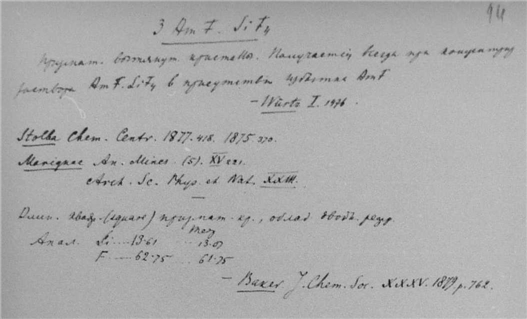 94
3 AmF. SiF₄
Призмат. вытянут. кристаллы. Получается всегда при концентрир
раствора AmF.SiF₄ в присутствии избытка AmF
— Wurtz I. 1476
Stolba Chem. Centr. 1877. 418. 1875. 370.
Marignac An. Mines (5). XV 221.
Arch. Sc. Phys. et Nat. XXIII.
Длин. квадр. (square) призмат. кр., облад.
Анал. Si --- 13.61 13.07
Theory
F --- 62.75 61.75
— Baker J. Chem. Soc. XXXV. 1879 p. 762.